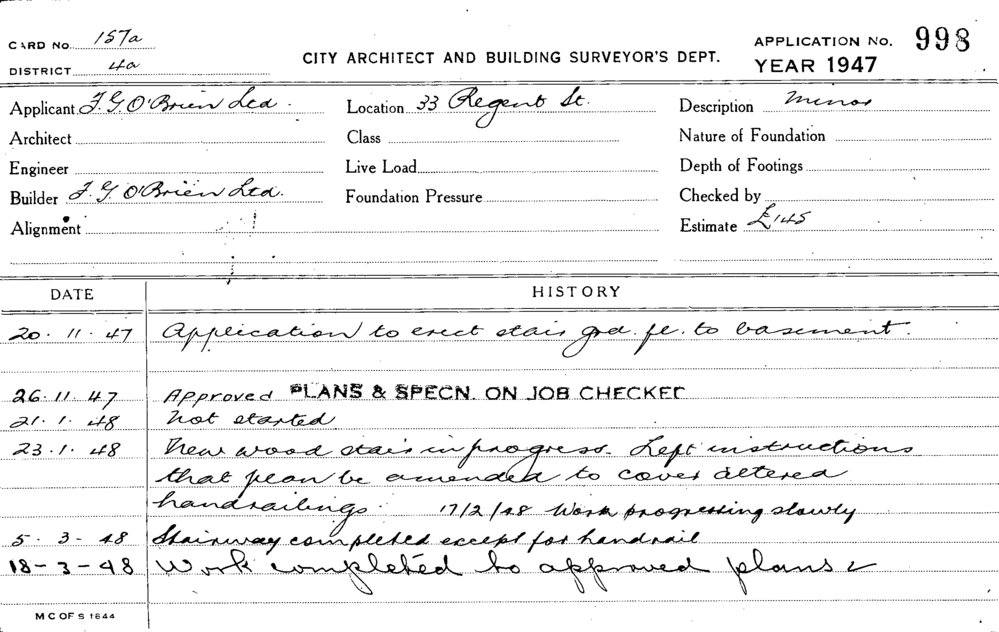 CARD No. 157a
DISTRICT 4a
CITY ARCHITECT AND BUILDING SURVEYOR'S DEPT.
APPLICATION No. 998
YEAR 1947
Applicant F. G. O'Brien Ltd.
Location 33 Regent St.
Description Minor
Architect
Class
Nature of Foundation
Engineer
Live Load
Depth of Footings
Builder F. G. O'Brien Ltd.
Foundation Pressure
Checked by
Alignment
Estimate £145
DATE HISTORY
20.11.47 Application to erect stair grd. fl. to basement.
26.11.47 Approved PLANS & SPECN. ON JOB CHECKED
21.1.48 Not started
23.1.48 New wood stair in progress. Left instructions
that plan be amended to cover altered
handrailings 17/2/48 Work progressing slowly
5.3-48 Stairway completed except for handrail
18-3-48 Work completed to approved plans
M C OF S 1844